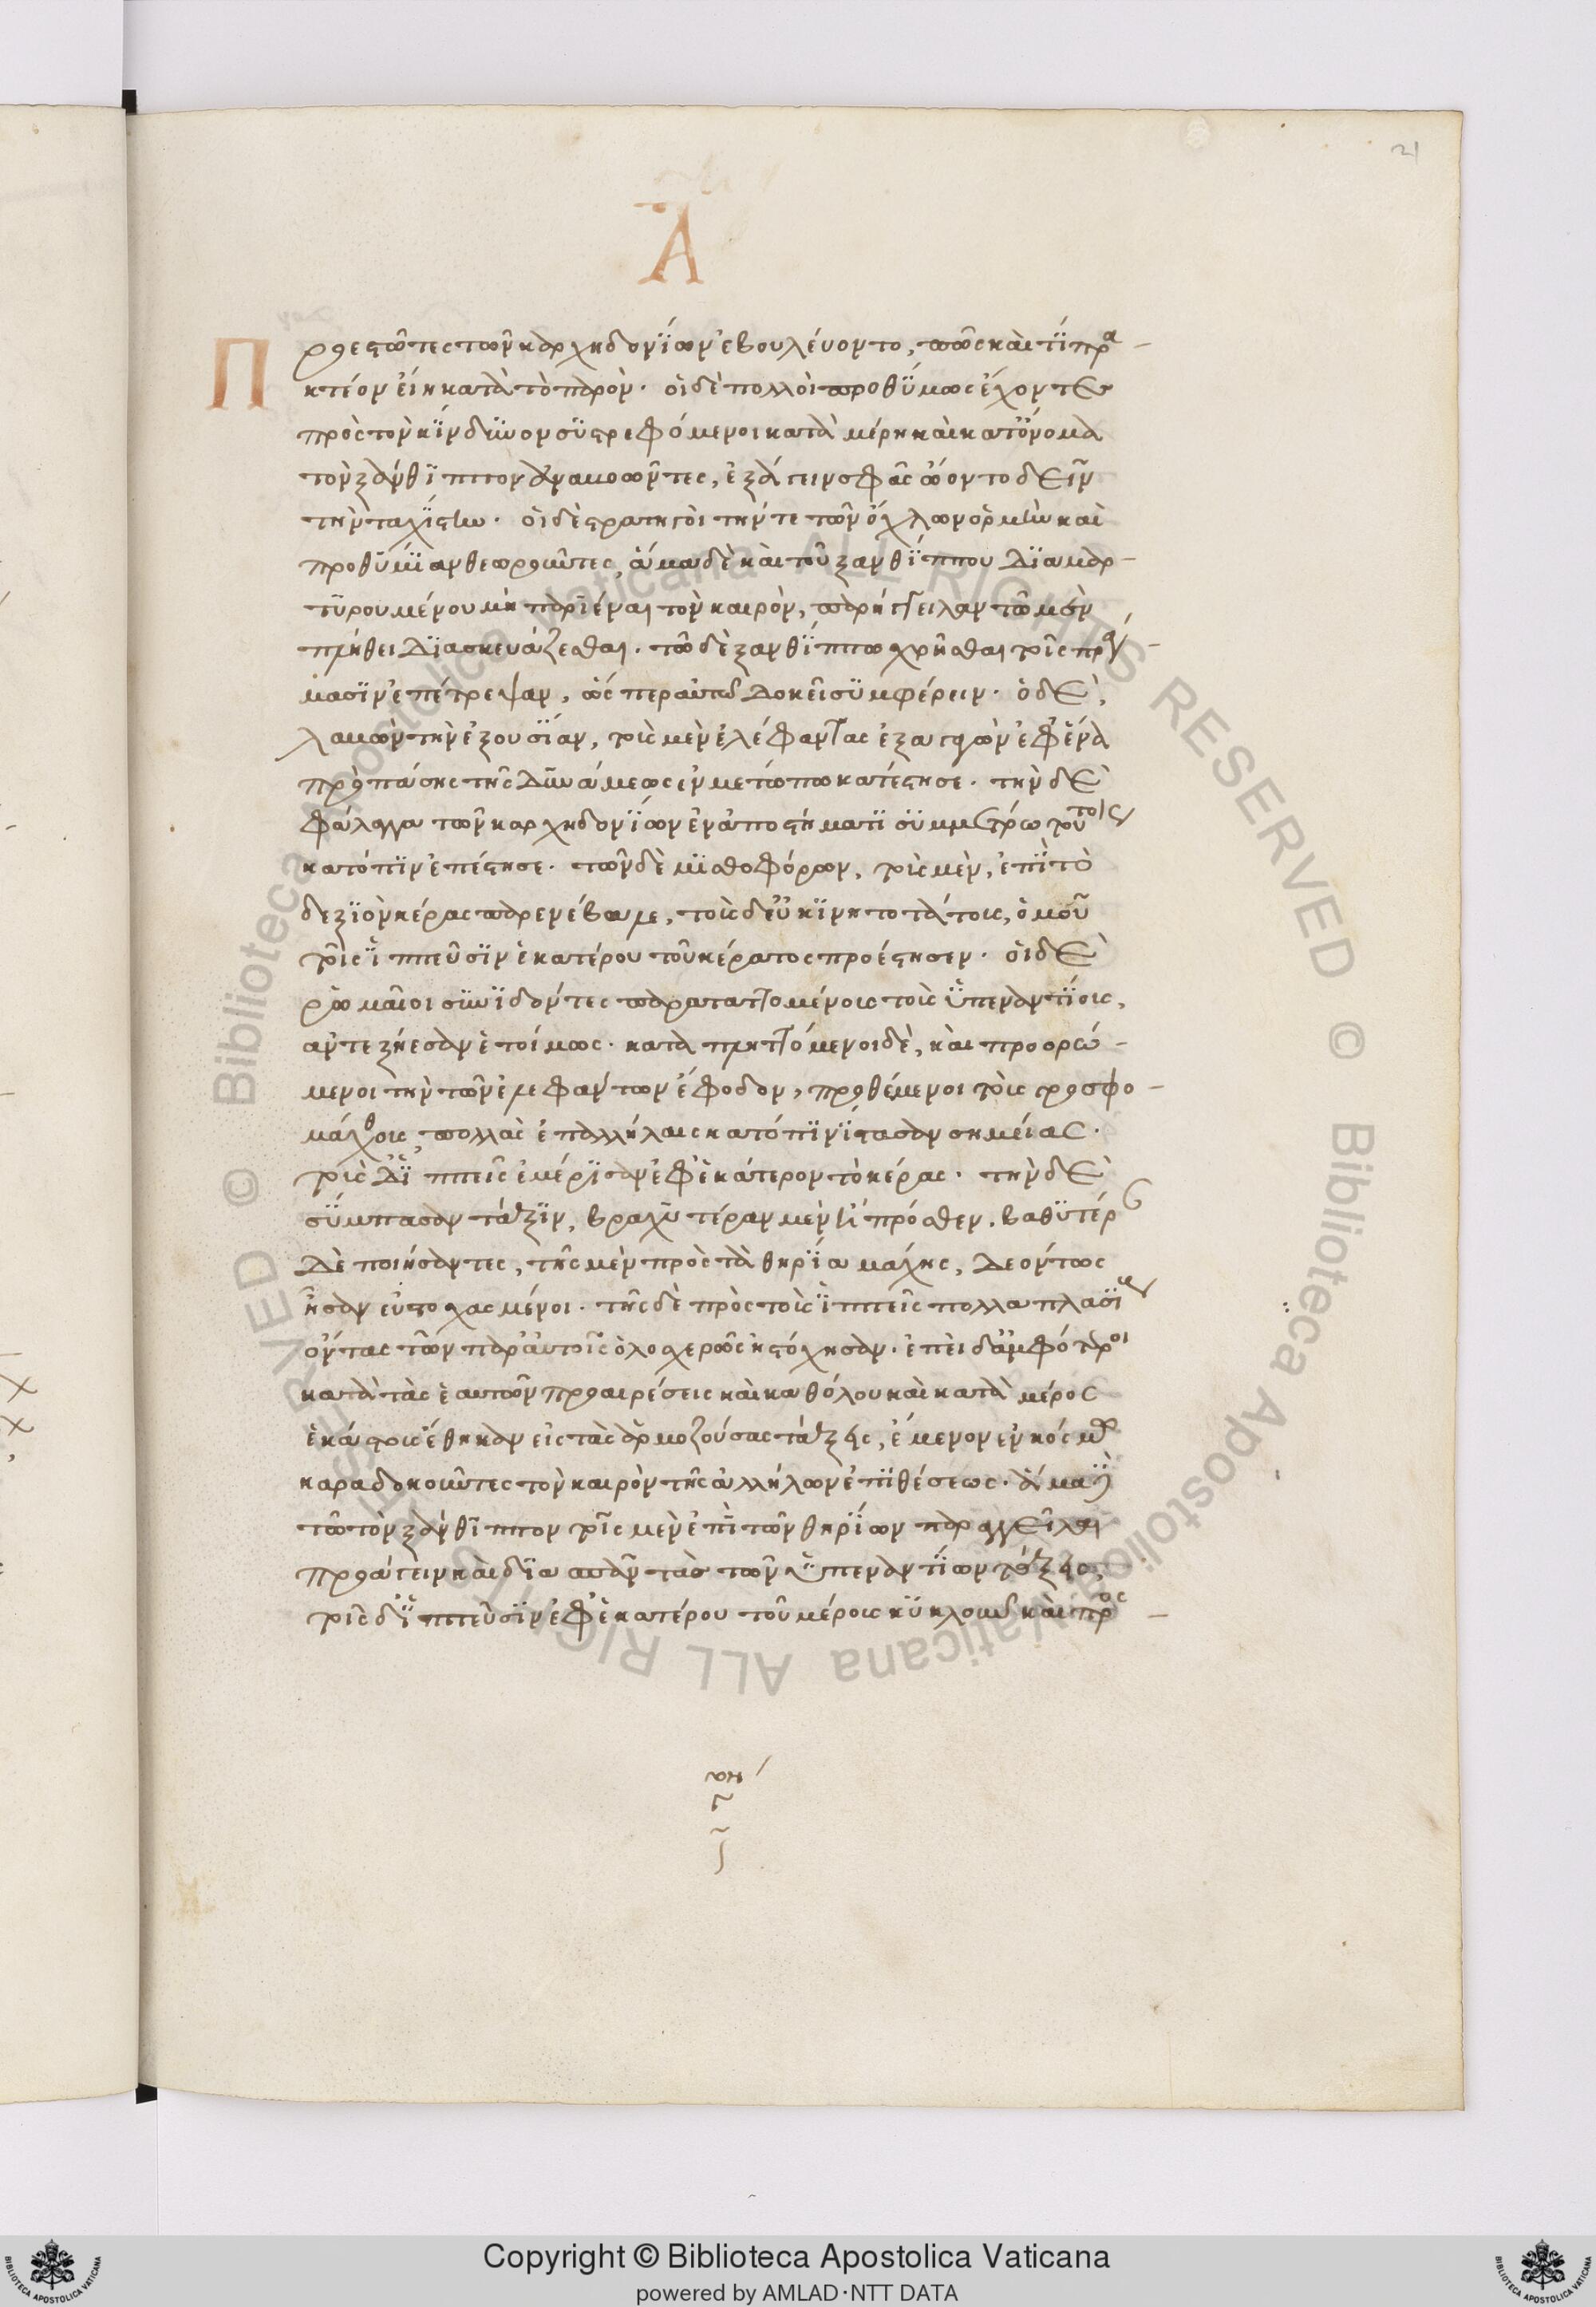 21
Α
Προεστῶτες τῶν καρχηδονΐων ἐβουλέυοντο, πῶς καὶ τί πρα
κτέον ἐίη κατὰ τὸ παρὸν. οἱ δὲ πολλοὶ προθΰμως ἔχοντες
πρὸς τὸν κΐνδυνον συστρεφόμενοι κατὰ μέρη καὶ κατ' ὄνομα
τὸν ξάνθιππον ἀναβοῶντες, ἐξάγειν σφᾶς ὤοντο δεῖν
τὴν ταχίστην. οἱ δὲ στρατηγοὶ τήν τε τῶν ὄχλων ὁρμὴν καὶ
προθυμίαν θεωροῦντες, ἅμα δὲ καὶ τοῦ ξανθΐππου διαμαρ
τυρουμένου μὴ παριέναι τὸν καιρὸν, παρήγγειλαν τῶ μὲν
πλήθει διασκευάζεσθαι. τῶ δὲ ξανθΐππω χρῆσθαι τοῖς πράγ
μασιν ἐπέτρεψαν, ὥς περ αὐτῶ δοκεῖ συμφέρειν. ὁ δὲ,
λαβὼν τὴν ἐξουσίαν, τοὺς μὲν ἐλέφαντας ἐξαγαγὼν ἐφ' ἕνα
πρὸ πάσης τῆς δυνάμεως ἐν μετώπω κατέστησε. τὴν δὲ
φάλαγγα τῶν καρχηδονίων ἐν ἀποστήματι συμμέτρω τούτοις
κατόπιν ἐπέστησε. τῶν δὲ μισθοφόρων, τοὺς μὲν, ἐπὶ τὸ
δεξιὸν κέρας παρενέβαλε, τοὺς δ' εὐκινητοτάτους, ὁμοῦ
τοῖς ἱππεῦσιν ἑκατέρου τοῦ κέρατος προέστησεν. οἱ δὲ
ρωμαῖοι συνιδόντες παρατατΤομένους τοὺς ὑπεναντίους,
ἀντεξήεσαν ἑτοίμως. καταπληττόμενοι δὲ, καὶ προορώ
μενοι τὴν τῶν ἐλεφάντων ἔφοδον, προθέμενοι τοὺς γροσφο
μάχους, πολλὰς ἐπαλλήλους κατόπιν ἵστασαν σημείας.
τοὺς δ' ἱππεῖς ἐμέρισαν ἐφ' ἑκάτερον τὸ κέρας. τὴν δὲ
σύμπασαν τάξιν, βραχυτέραν μὲν ἢ πρόσθεν, βαθυτέραν
δὲ ποιήσαντες, τῆς μὲν πρὸς τὰ θηρία μάχης, δεόντως
ἦσαν εὐστοχασμένοι. τῆς δὲ πρὸς τοὺς ἱππεῖς πολλαπλασί
οντας τῶν παρ' αὐτοῖς ὁλοσχερῶς ἠστόχησαν. ἐπεὶ δ' ἀμφότεροι
κατὰ τὰς ἑαυτῶν προαιρέσεις καὶ καθόλου καὶ κατὰ μέρος
ἑκάστους ἔθηκαν εἰς τὰς ἁρμοζούσας τάξεις, ἔμενον ἐν κόσμω
καραδοκοῦντες τὸν καιρὸν τῆς ἀλλήλων ἐπιθέσεως. ἅμα δὲ
τῶ τὸν ξάνθιππον τοῖς μὲν ἐπὶ τῶν θηρίων παραγγεῖλαι
προάγειν καὶ διαλύειν τὰς τῶν ὑπεναντίων τάξεις,
τοῖς δ' ἱππεῦσιν ἐφ' ἑκατέρου τοῦ μέρους κυκλοῦν καὶ προσ